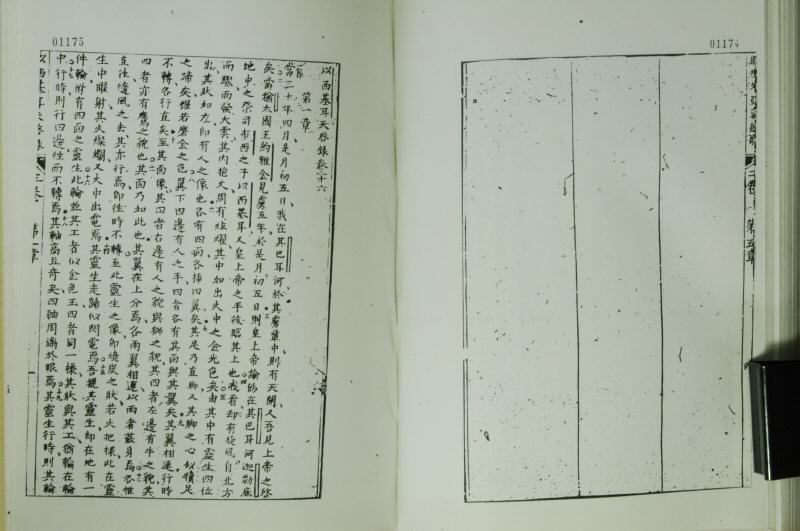 01174
01175
以西基耳天啓錄卷二十六
第一章
當三十年四月是月初五日、我在其巴耳河於其虜輩中、則有天開、又吾見上帝之啓
矣、當猶大國王約雅金見虜五年、於是月初五日、則皇上帝諭飭在其巴耳河迦勒底
地中之祭司布西之子以西基耳、又皇上帝之手彼臨其上也、我看、却有旋風自北方
而驟而發大雲、其內搶火、周有炫燿、其中如出火中之金光色矣、由其中有靈生四位
出、其狀如左、即有人之像也、各有四面、各掃四翼矣、其足乃直脚、又其脚之心似犢足
之蹄矣、燿若磨金之色、翼下四邊有人之手、四者各有其面與其翼矣、其翼相連、行時
不轉、各行直矣、至其面像、其四者右邊有人之貌與獅之貌、其四者左邊有牛之貌、其
四者亦有鷹之貌也、其面乃如此也、其翼在上分焉、各兩翼相連、以兩者蔽身焉、各惟
直往、隨風之去、其亦行焉、即往時不轉、至此靈生之像、即燒炭之狀、若火把樣、此在靈
生中暇射、其火燦爛、又火中出電焉、其靈生走歸似閃電焉、吾視其靈生、却在地有一
件輪、附有四面之靈生、此輪並其工者似金色玉、四者同一樣、其狀與其工、猶輪在輪
中、行時則行四邊、往而不轉焉、其軸高且奇矣、四軸周滿於眼焉、其靈生行時、則其輪
以西基耳天啓錄
第一章
第五章